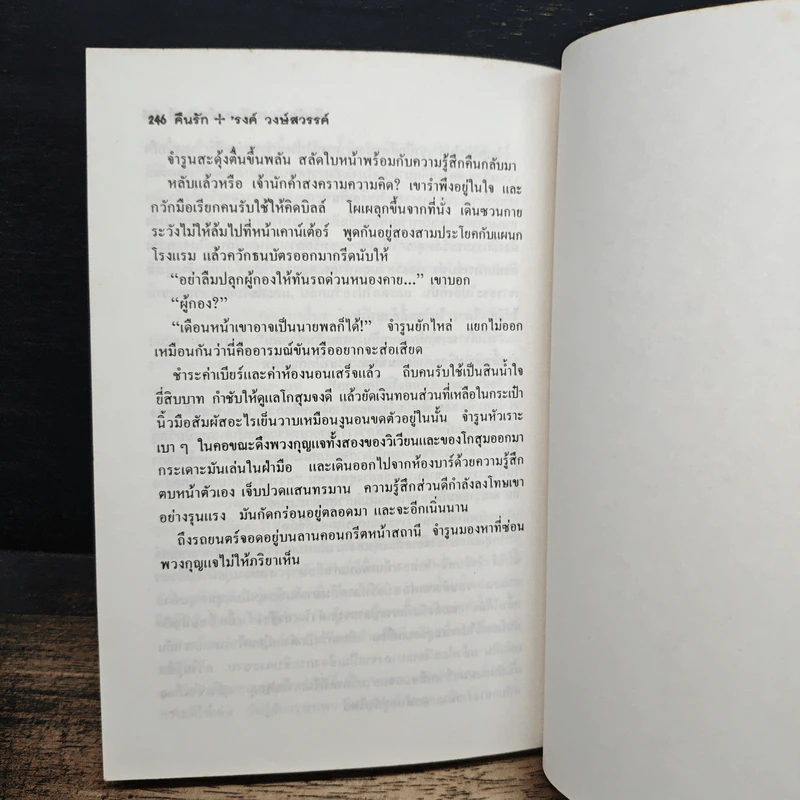 246 คืนรัก + 'รงค์ วงษ์สวรรค์
จำรูนสะดุ้งตื่นขึ้นพลัน สลัดใบหน้าพร้อมกับความรู้สึกคืนกลับมา
หลับแล้วหรือ เจ้านักค้าสงครามความคิด? เขารำพึงอยู่ในใจ และ
กวักมือเรียกคนรับใช้ให้คิดบิลล์ โผเผลุกขึ้นจากที่นั่ง เดินซวนกาย
ระวังไม่ให้ล้มไปที่หน้าเคาน์เต้อร์ พูดกันอยู่สองสามประโยคกับแผนก
โรงแรม แล้วควักธนบัตรออกมากรีดนับให้
“อย่าลืมปลุกผู้กองให้ทันรถด่วนหนองคาย...” เขาบอก
“ผู้กอง?”
“เดือนหน้าเขาอาจเป็นนายพลก็ได้!” จำรูนยักไหล่ แยกไม่ออก
เหมือนกันว่านี่คืออารมณ์ขันหรืออยากจะส่อเสียด
ชำระค่าเบียร์และค่าห้องนอนเสร็จแล้ว ถีบคนรับใช้เป็นสินน้ำใจ
ยี่สิบบาท กำชับให้ดูแลโกสุมจงดี แล้วยัดเงินทอนส่วนที่เหลือในกระเป๋า
นิ้วมือสัมผัสอะไรเย็นวาบเหมือนงูนอนขดตัวอยู่ในนั้น จำรูนหัวเราะ
เบา ๆ ในคอขณะดึงพวงกุญแจทั้งสองของวิเวียนและของโกสุมออกมา
กระเดาะมันเล่นในฝ่ามือ และเดินออกไปจากห้องบาร์ด้วยความรู้สึก
ตบหน้าตัวเอง เจ็บปวดแสนทรมาน ความรู้สึกส่วนดีกำลังลงโทษเขา
อย่างรุนแรง มันกัดกร่อนอยู่ตลอดมา และจะอีกเนิ่นนาน
ถึงรถยนตร์จอดอยู่บนลานคอนกรีตหน้าสถานี จำรูนมองหาที่ซ่อน
พวงกุญแจไม่ให้ภริยาเห็น